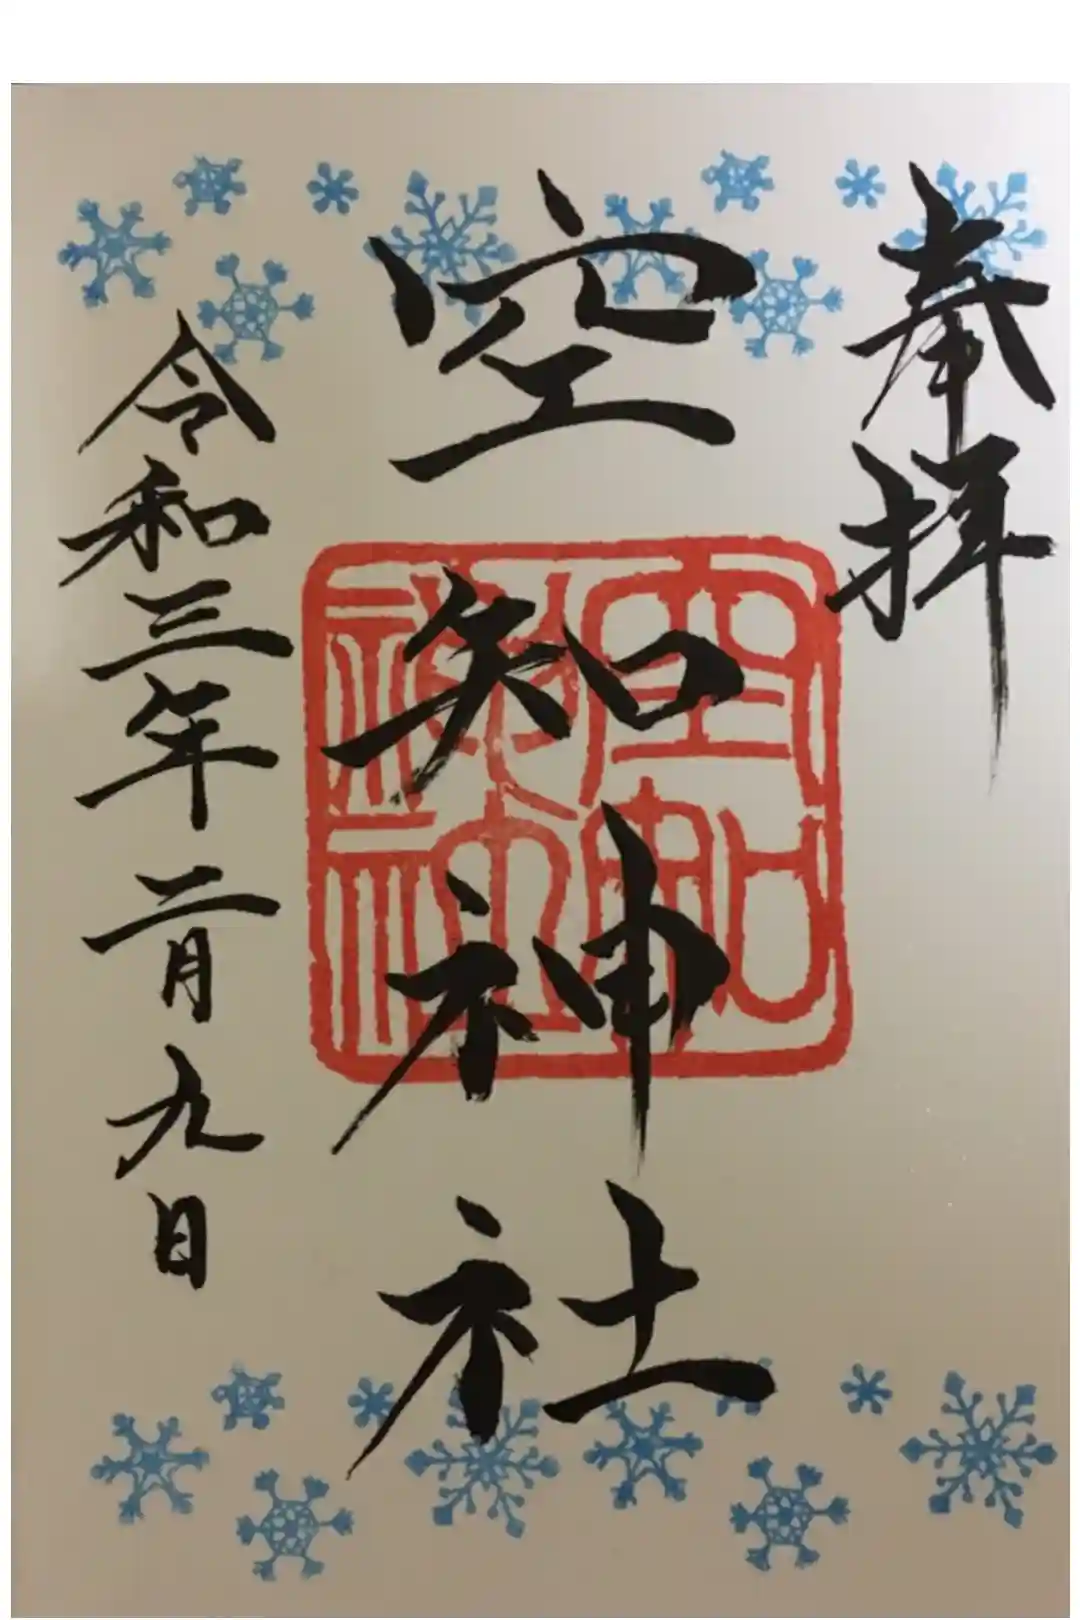 奉拝
空知神社
空知神社
令和三年二月九日